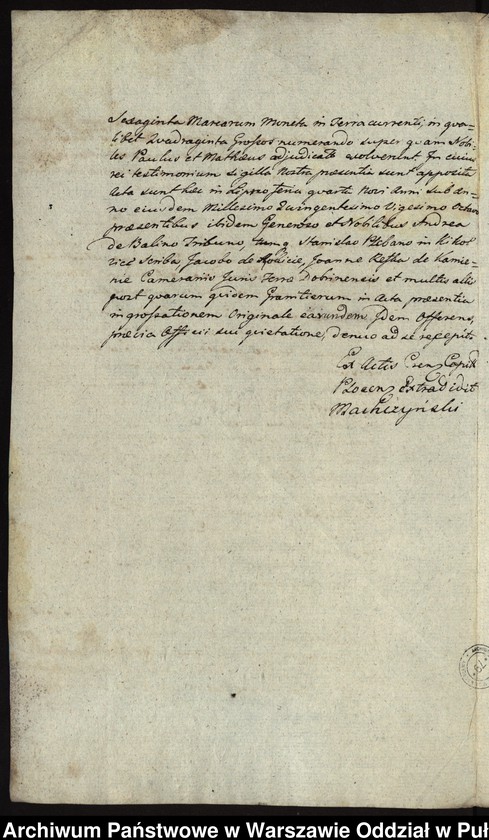 Sexaginta Marcarum Moneta in Terra currenti, in qua=
libet Quadraginta Grossos numerando super quam Nobi=
les Paulus et Mathæus adjudicate evolverunt In cuius
rei testimonium sigilla nostra præsentia sunt apposita
Acta sunt hæc in feria quarta Novi Anni sub an=
no eiusdem Millesimo Quingentesimo Vigesimo Octavo
præsentibus ibidem Generoso et Nobilibus Andrea
de Balino Tribuno, Stanislao Plebano in Kikol
Scriba Jacobo de Joanne de Kamie=
nie Camerariis Juris Terræ Dobrinensis et multis aliis
post quarum quidem Granitierum in Acta præsentia
ingrossationem Originale earundem Idem Offerens,
præcia Officii sui quietatione, denuo ad se recepit.
Ex Actis
Extradidit
Machczyński
Archiwum Państwowe w Warszawie Oddział w Puł